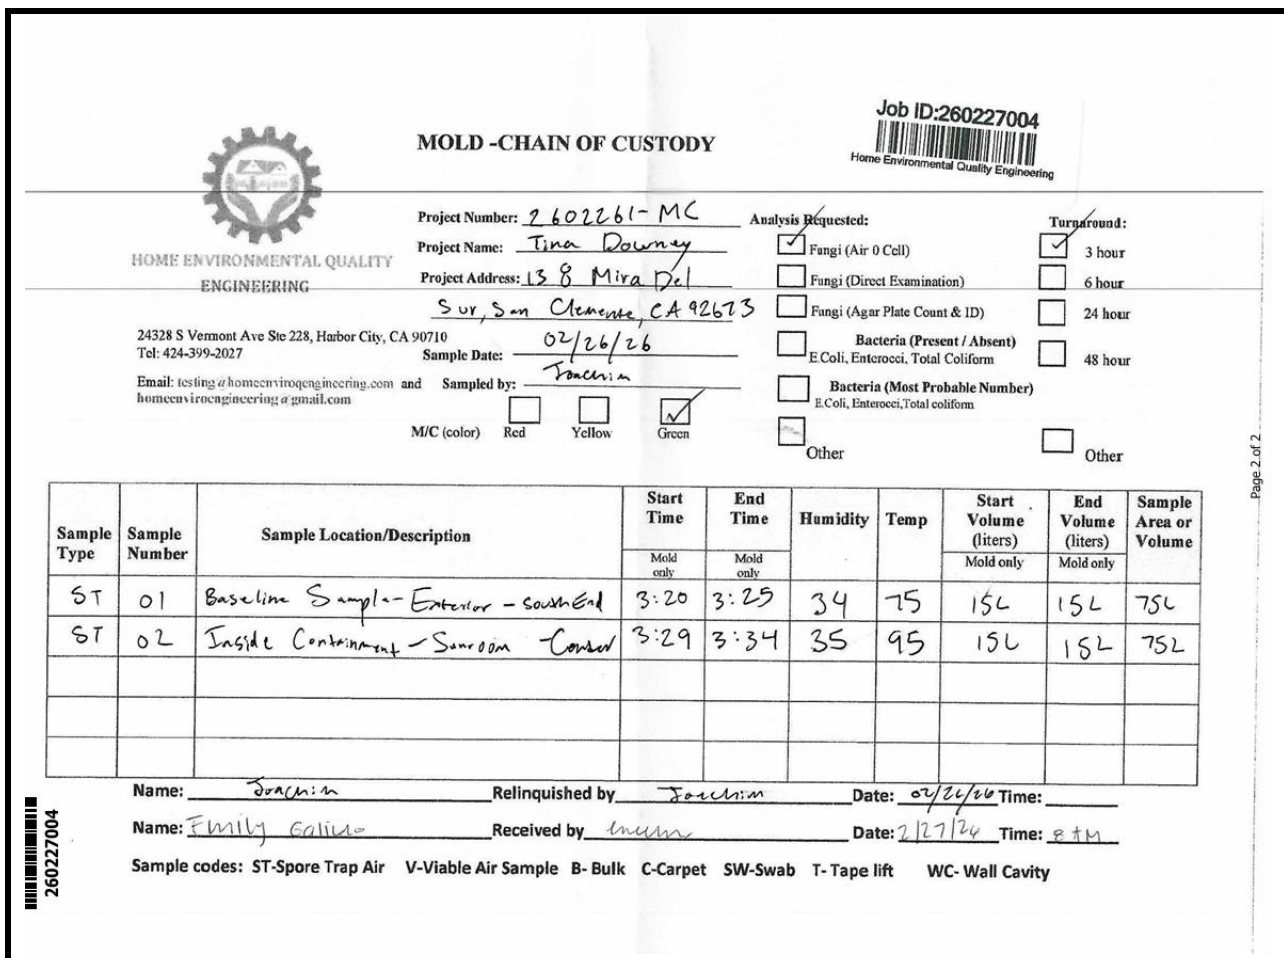 Job ID:260227004
Home Environmental Quality Engineering
MOLD -CHAIN OF CUSTODY
HOME ENVIRONMENTAL QUALITY
ENGINEERING
24328 S Vermont Ave Ste 228, Harbor City, CA 90710
Tel: 424-399-2027
Email: testing@homeenviroqengineering.com and
homeenviroengineering@gmail.com
Project Number: 2602261-MC
Project Name: Tina Downey
Project Address: 138 Mira Del
Sur, San Clemente, CA 92673
Sample Date: 02/26/26
Sampled by: Joachim
M/C (color) Red Yellow Green
Analysis Requested:
Fungi (Air 0 Cell)
Fungi (Direct Examination)
Fungi (Agar Plate Count & ID)
Bacteria (Present / Absent)
E.Coli, Enterocci, Total Coliform
Bacteria (Most Probable Number)
E.Coli, Enterocci,Total coliform
Other
Turnaround:
3 hour
6 hour
24 hour
48 hour
Other
Page 2 of 2
Sample Type Sample Number Sample Location/Description Start Time Mold only End Time Mold only Humidity Temp Start Volume (liters) Mold only End Volume (liters) Mold only Sample Area or Volume
ST 01 Baseline Sample - Exterior - South End 3:20 3:25 34 75 15L 15L 75L
ST 02 Inside Containment - Sunroom - 3:29 3:34 35 95 15L 15L 75L
Name: Joachim Relinquished by Joachim Date: 02/26/26 Time:
Name: Emily Received by Date: 2/27/26 Time: 8 AM
260227004
Sample codes: ST-Spore Trap Air V-Viable Air Sample B- Bulk C-Carpet SW-Swab T- Tape lift WC- Wall Cavity